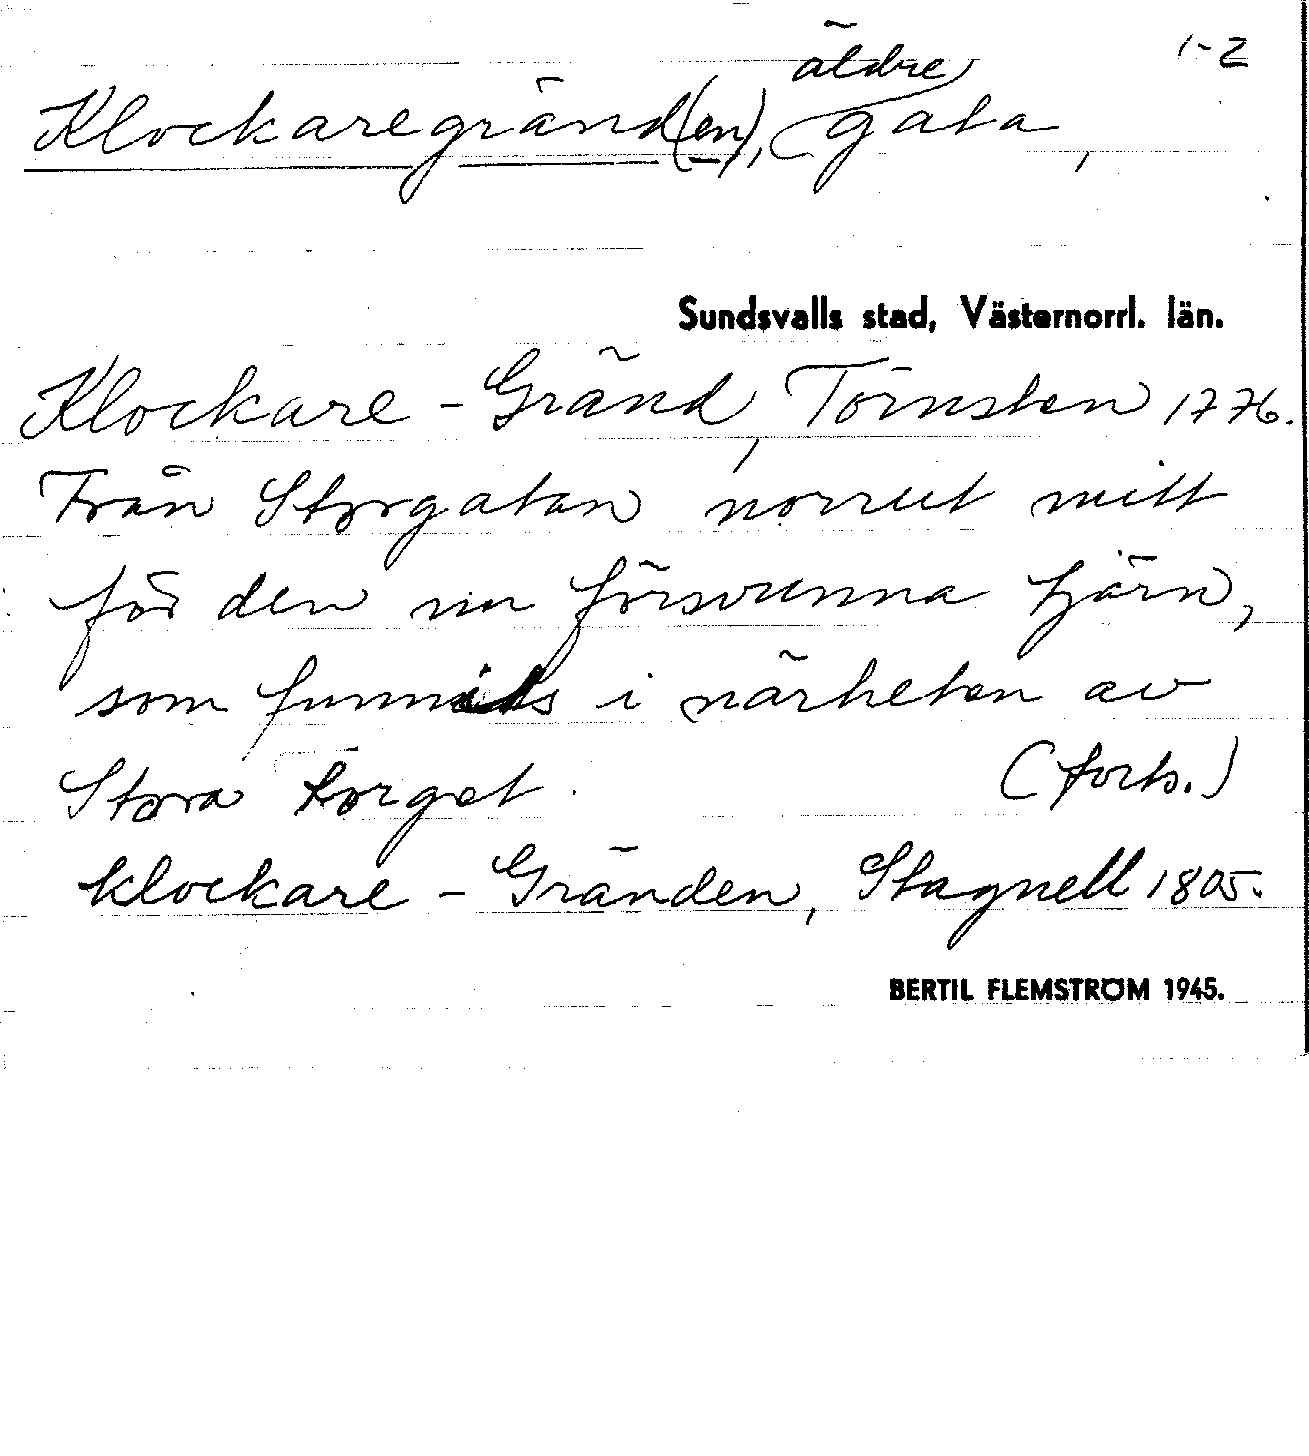 1-2
Klockaregränd(en), äldre gata,
Sundsvalls stad, Västernorrl. län.
Klockare-Gränd, Törnsten 1776.
Från Storgatan norrut mitt
för den nu försvunna tjärn,
som funnits i närheten av
Stora torget. (forts.)
Klockare-Gränden, Stagnell 1805.
BERTIL FLEMSTRÖM 1945.